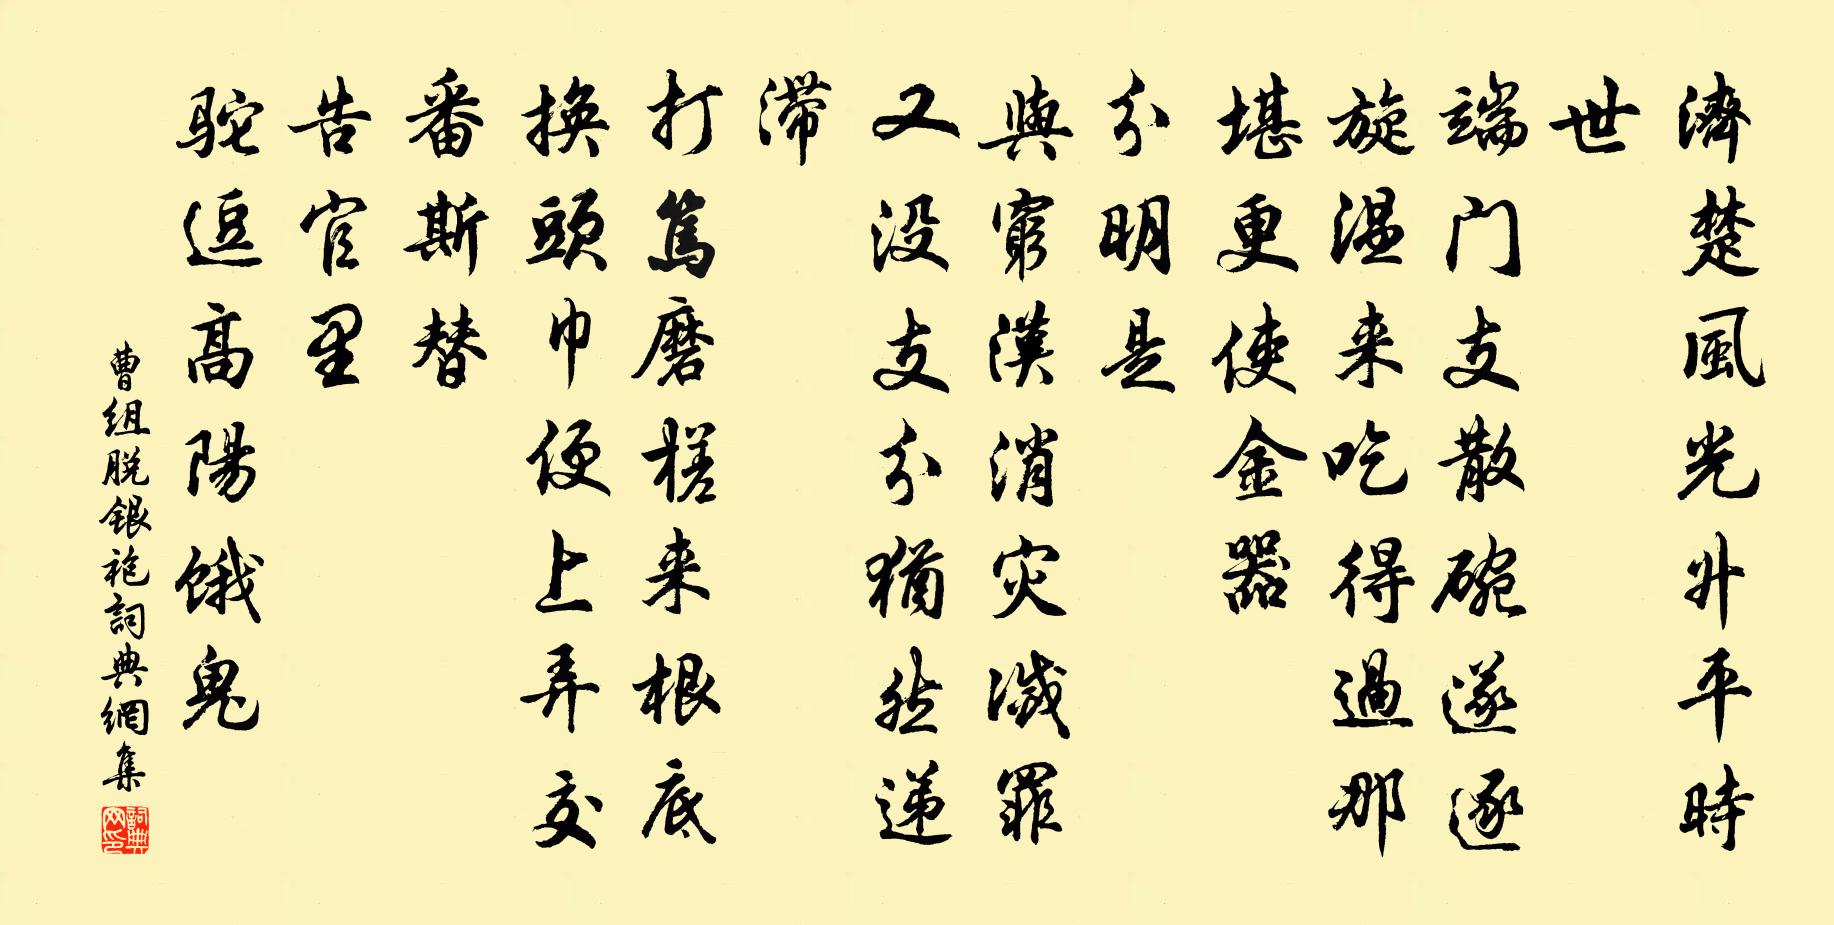 濟楚風光升平時
世
端門支散碗遂逐
旋温来吃得過那
堪更使金器
分明是
與窮漢消灾滅罪
又没支分猶然递
滞
打篤磨槎来根底
換頭巾便上弄交
番斯替
告官里
駝逗高陽餓鬼
曹組脱銀袍詞典網集
詞典网印